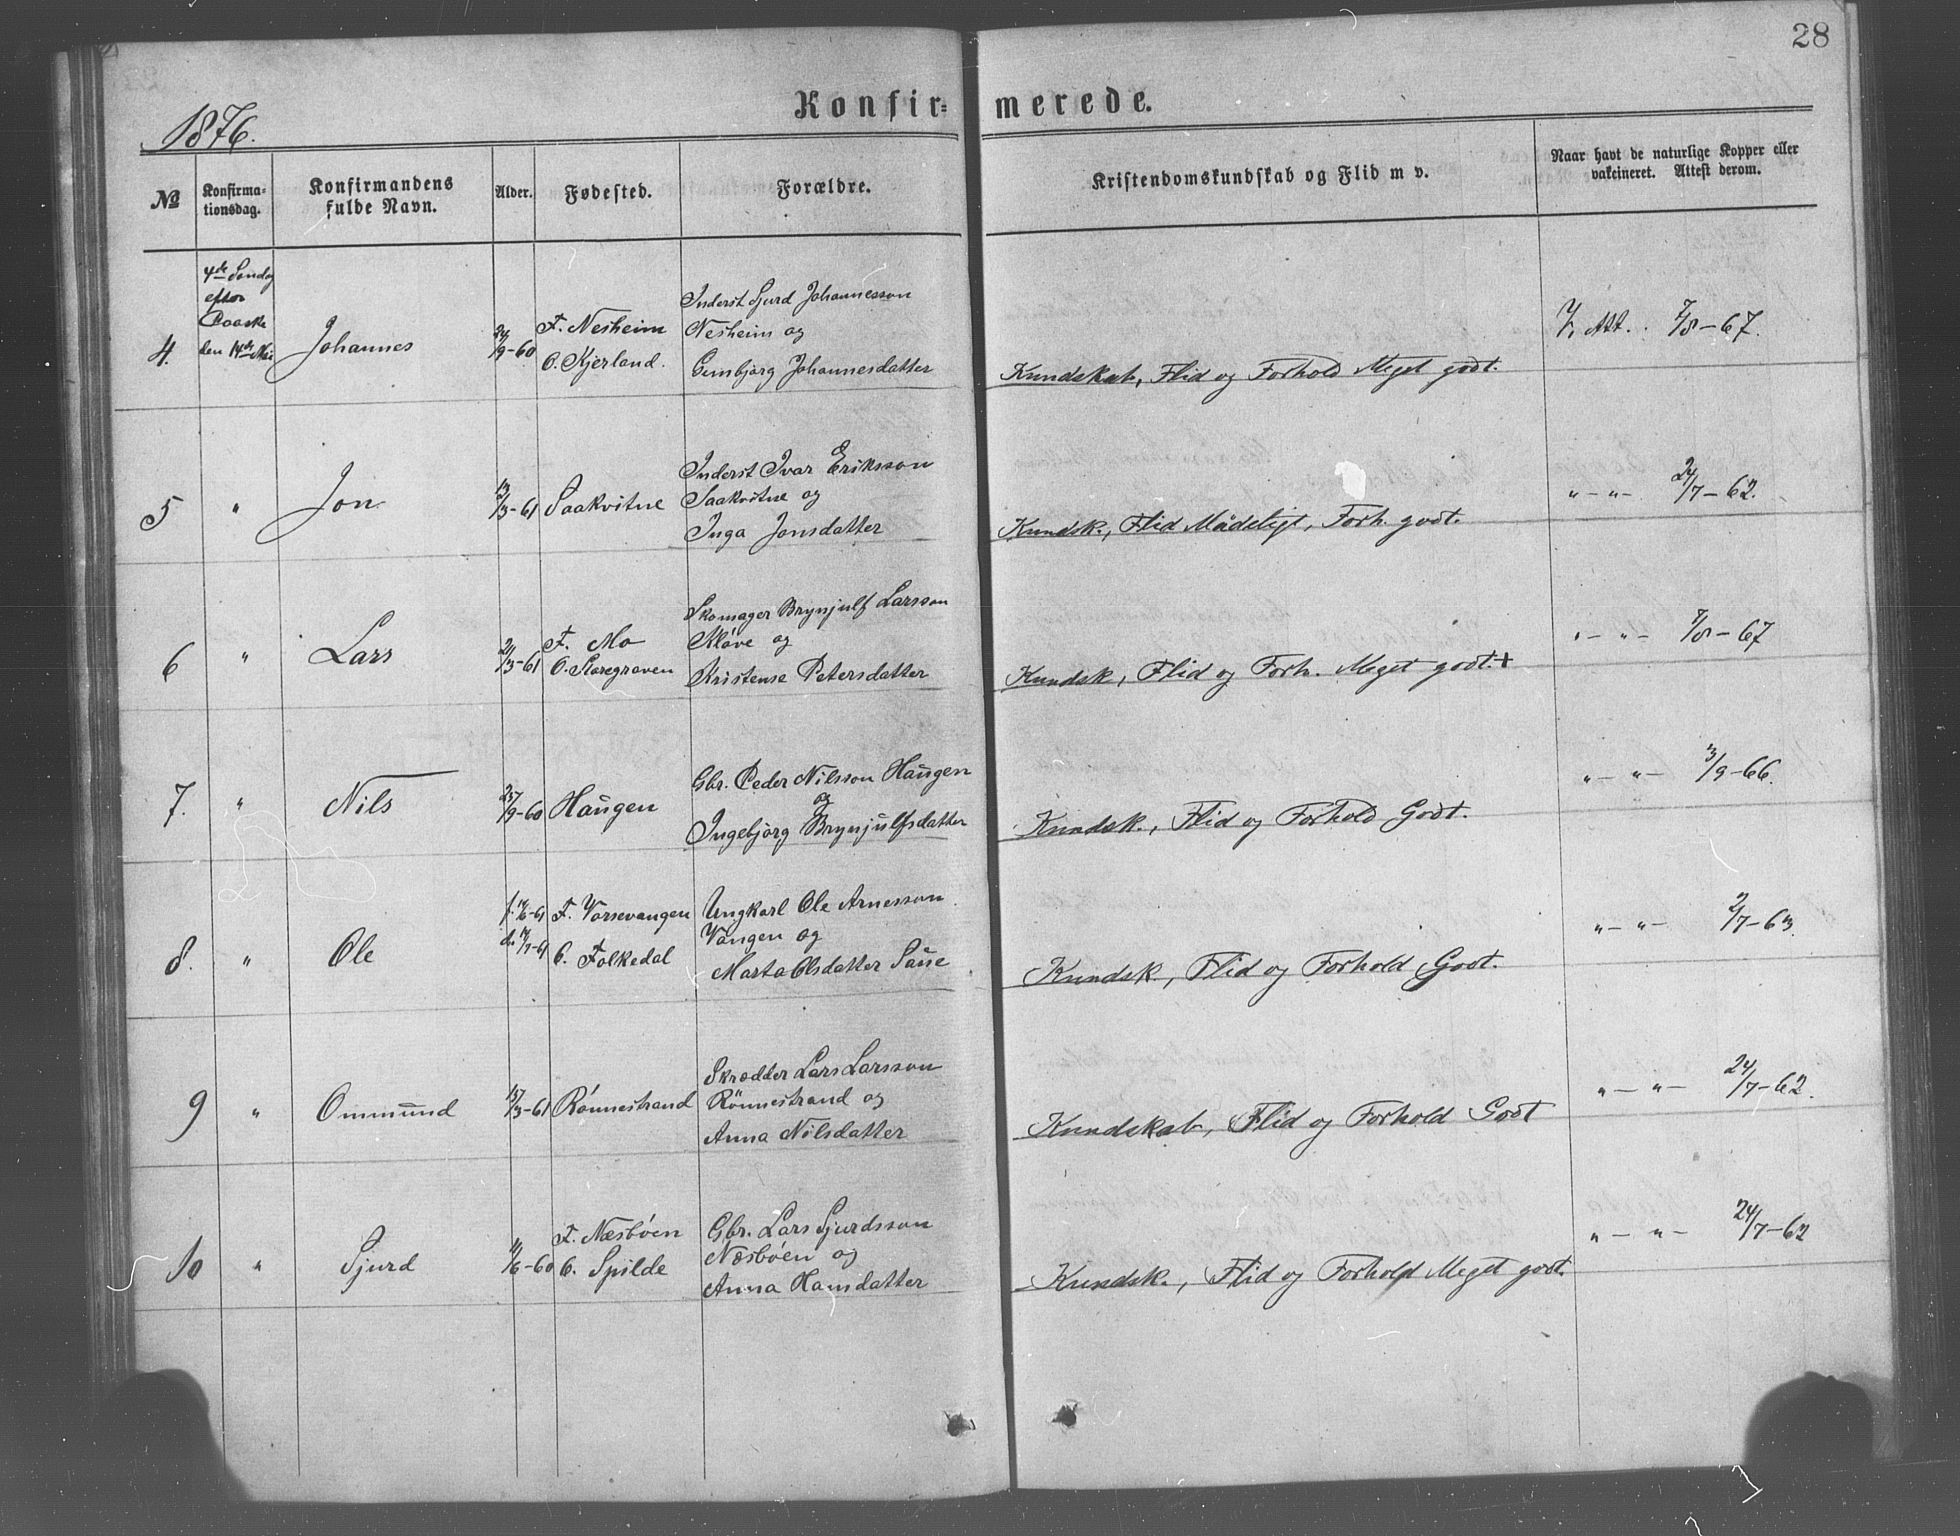 28
1876.
Konfir- merede.
No
Konfirma-
tionsdag.
Konfirmandens
fulde Navn.
Alder.
Fødested.
Forældre.
Kristendomskundskab og Flid m v.
Naar havt de naturlige Kopper eller
vakcineret. Attest derom.
4de Søndag
efter
Paaske
den 14de Mai
4. Johannes 24/9-60
F. Nesheim
O. Kjerland.
Inderst Sjurd Johannesson
Nesheim og
Gunbjørg Johannesdatter
Kundskab, Flid og Forhold Meget godt.
V. Att. 7/8-67.
5 " Jon 13/3-61 Saakvitne
Inderst Ivar Eriksson
Saakvitne og
Inga Jonsdatter
Kundsk., Flid Mådeligt, Forh. godt.
"-"- 24/7-62.
6 " Lars 21/3-61
F. Mo
O. Storegraven
Skomager Brynjulf Larsson
Kløve og
Kristense Petersdatter
Kundsk, Flid og Forh. Meget godt.+
"-"- 7/8-67
7. " Nils 25/9-60 Haugen
Gbr. Peder Nilsson Haugen
og
Ingebjørg Brynjulfsdatter
Kundsk., Flid og Forhold Godt.
"-"- 3/9-66.
8. " Ole
F. Vorsevangen
O. Folkedal
Ungkarl Ole Arnesson
Vangen og
Marta Olsdatter Saue
Kundsk., Flid og Forhold Godt.
"-"- 2/7-63.
9 " Ommund 15/3-61 Rönnestrand
Skrædder Lars Larsson
Rönnestrand og
Anna Nilsdatter
Kundskab, Flid og Forhold Godt
"-"- 24/7-62.
10 " Sjurd 11/6-60
F. Næsbøen
O. Spilde
Gbr. Lars Sjurdsson
Næsbøen og
Anna Hansdatter
Kundsk., Flid og Forhold Meget godt.
"-"- 24/7-62